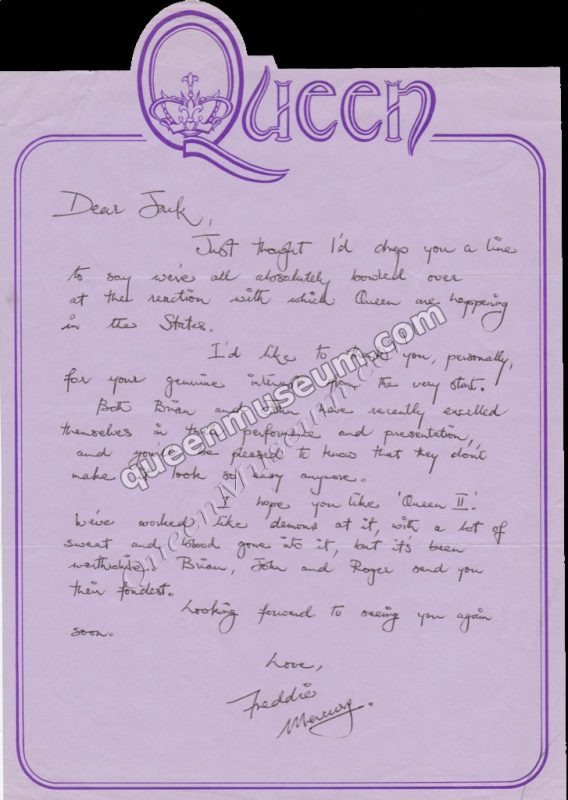 Queen
Dear Jack,
Just thought I'd drop you a line
to say we're all absolutely bowled over
at the reaction with which Queen are happening
in the States.
I'd like to thank you, personally,
for your genuine interest from the very start.
Both Brian and John have recently excelled
themselves in their performance and presentation,
and you'll be pleased to know that they don't
make it look so easy anymore.
I hope you like 'Queen II'.
We've worked like demons at it, with a lot of
sweat and blood gone into it, but it's been
worthwhile. Brian, John and Roger send you
their fondest.
Looking forward to seeing you again
soon.
Love,
Freddie
Mercury.
queenmuseum.com
QueenMuseum.com